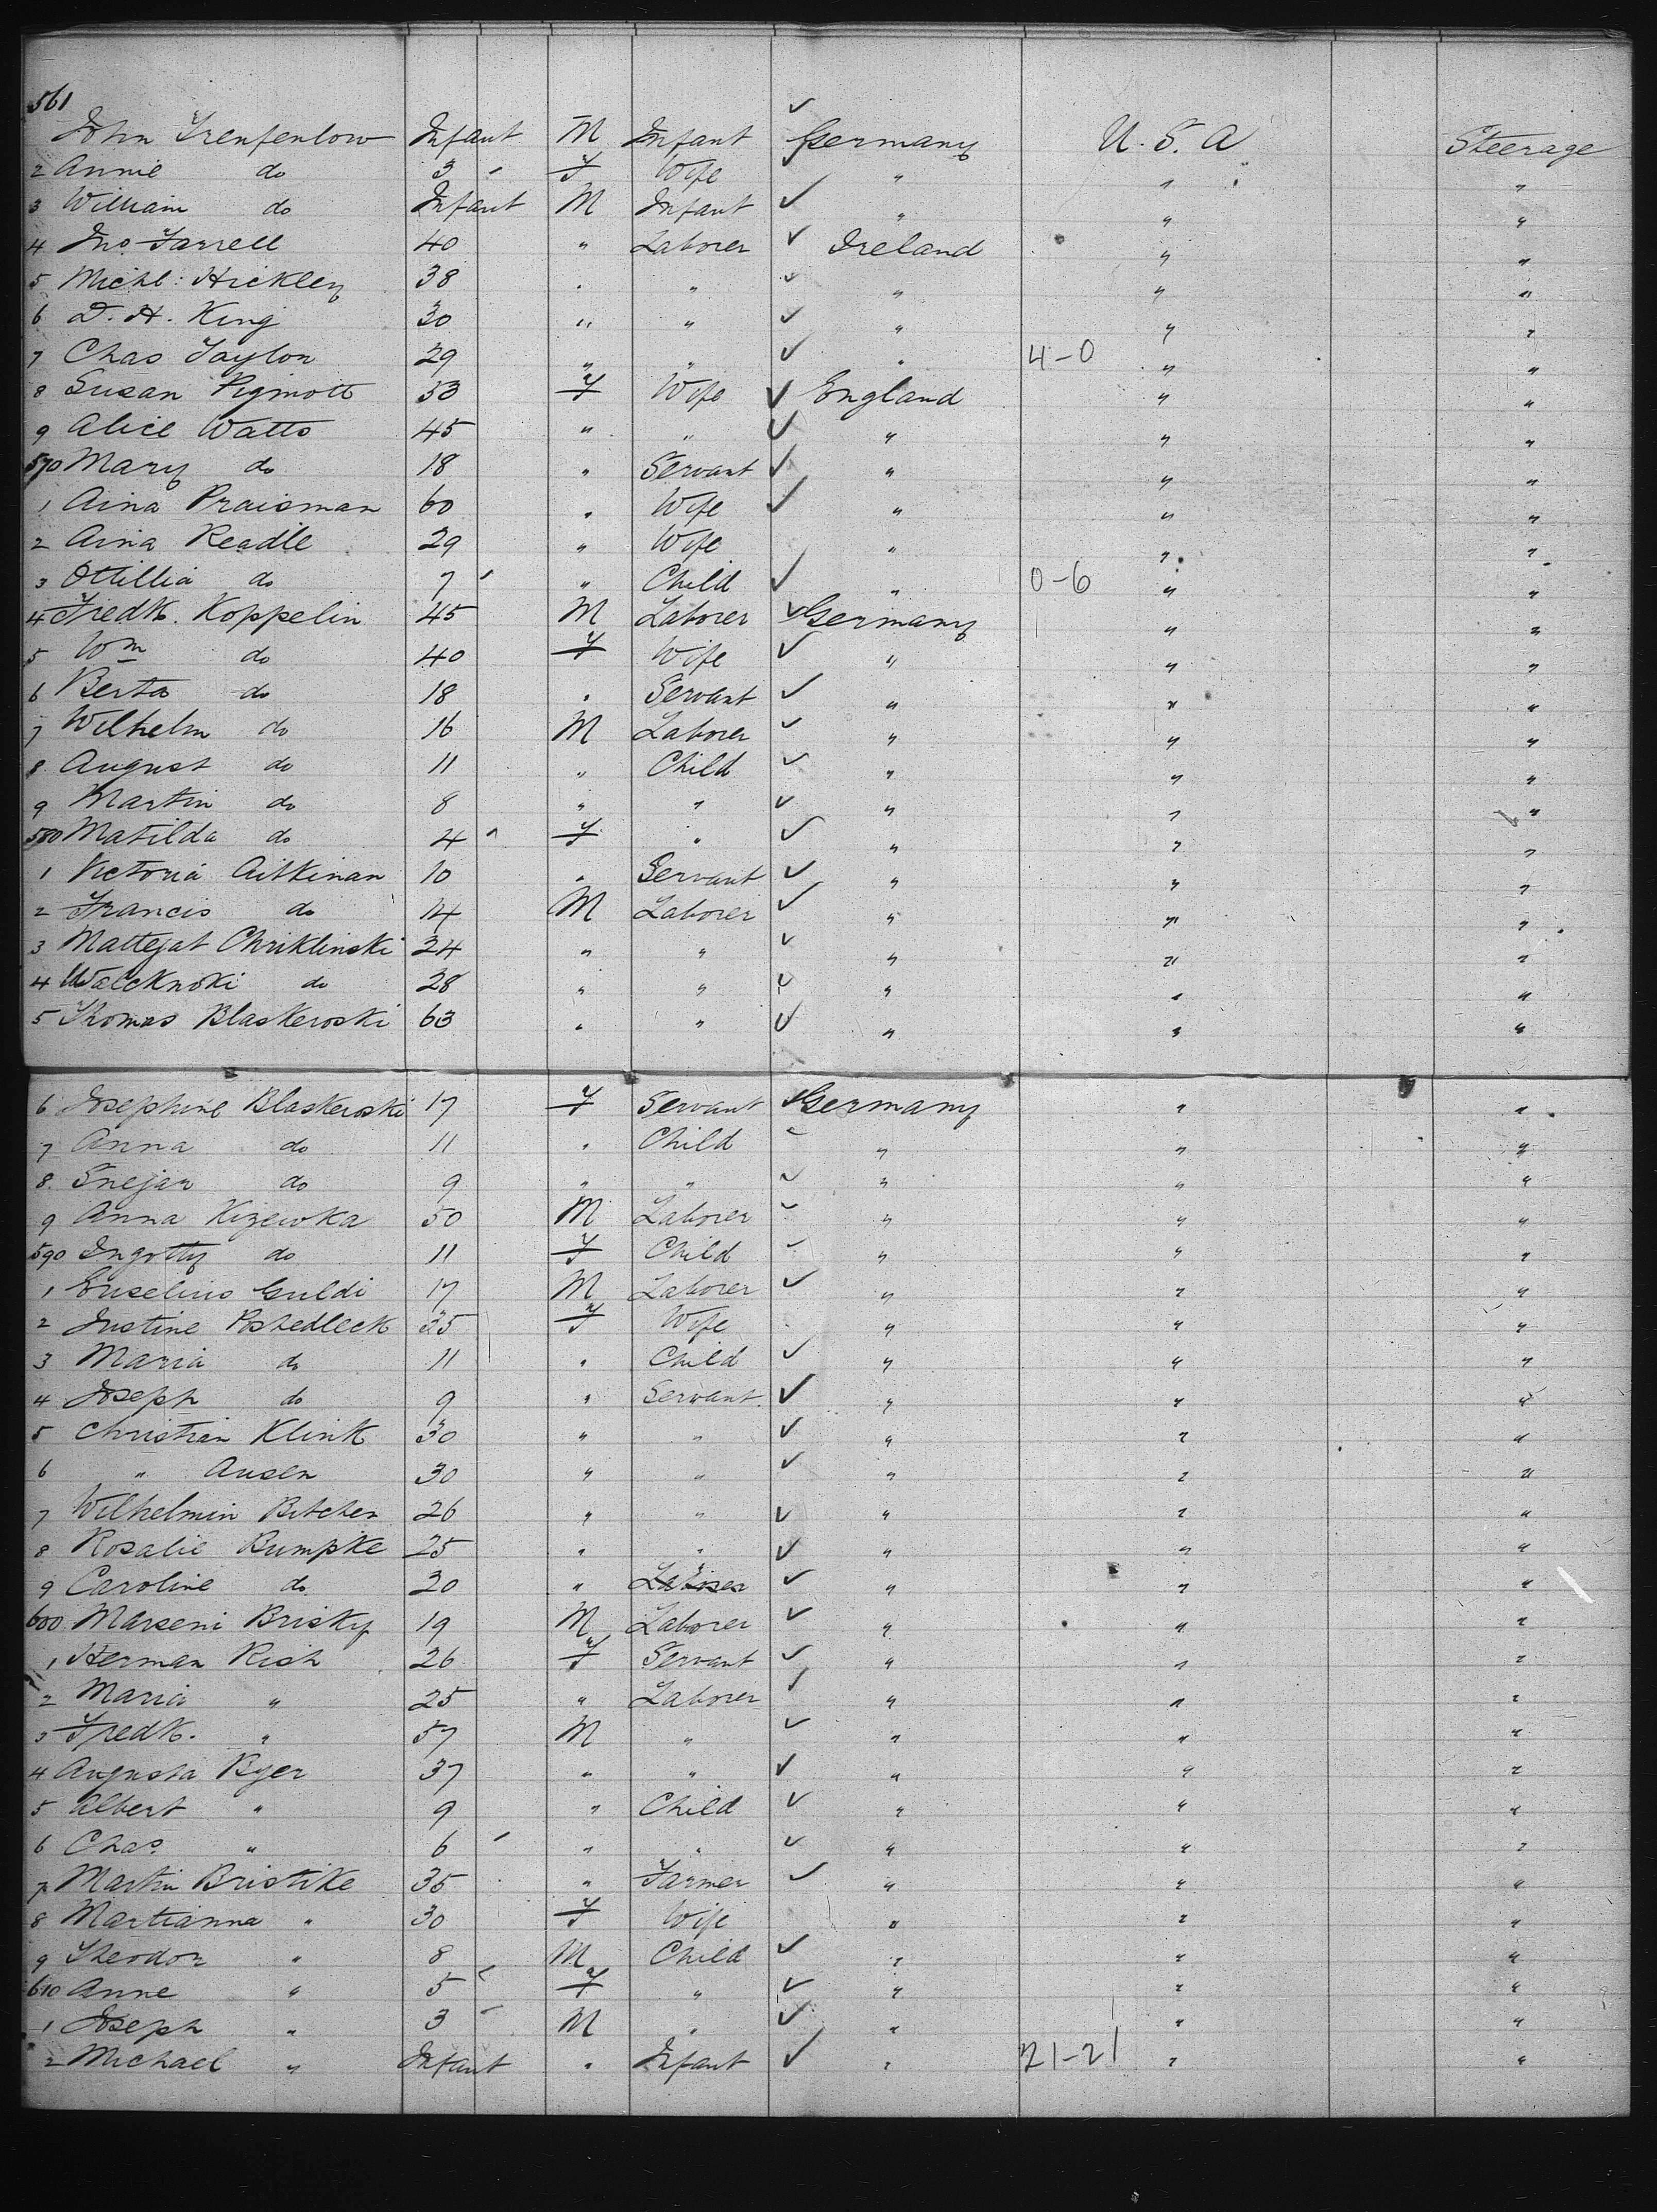 561
John Trenfenlow Infant M Infant Germany U. S. A Steerage
2 Annie do 3 F Wife " " "
3 William do Infant M Infant " " "
4 Jno. Farrell 40 " Laborer Ireland " "
5 Michl: Hickley 38 " " " " "
6 D. H. King 30 " " " " "
7 Chas Taylor 29 " " " 4-0 " "
8 Susan Pigmott 53 F Wife England " "
9 Alice Watts 45 " " " " "
570 Mary do 18 " Servant " " "
1 Aina Praisman 60 " Wife " " "
2 Aina Readle 29 " Wife " " "
3 Ottillia do 7 " Child " 0-6 " "
4 Fredk. Koppelin 45 M Laborer Germany " "
5 Wm do 40 F Wife " " "
6 Berta do 18 " Servant " " "
7 Wilhelm do 16 M Laborer " " "
8 August do 11 " Child " " "
9 Martin do 8 " " " " "
580 Matilda do 4 F " " " "
1 Victoria Aitkinan 10 " Servant " " "
2 Francis do 14 M Laborer " " "
3 Mattejat Chriklinski 24 " " " " "
4 Walcknski do 28 " " " " "
5 Thomas Blaskeroski 63 " " " " "
6 Josephine Blaskeroski 17 F Servant Germany " "
7 Anna do 11 " Child " " "
8 Snejan do 9 " " " " "
9 Anna Kizewka 50 M Laborer " " "
590 Ingotty do 11 F Child " " "
1 Enselino Guldi 17 M Laborer " " "
2 Justine Poshedleck 35 F Wife " " "
3 Maria do 11 " Child " " "
4 Joseph do 9 " Servant " " "
5 Christian Klink 30 " " " " "
6 " Ausen 30 " " " " "
7 Wilhelmin Bitcher 26 " " " " "
8 Rosalie Bumpke 25 " " " " "
9 Caroline do 20 " Laborer " " "
600 Marseni Brisky 19 M Laborer " " "
1 Herman Rish 26 F Servant " " "
2 Maria " 25 " Laborer " " "
3 Fredk. " 57 M " " " "
4 Augusta Byer 37 " " " " "
5 Albert " 9 " Child " " "
6 Chas. " 6 " " " " "
7 Martin Bristike 35 " Farmer " " "
8 Martianna " 30 F Wife " " "
9 Theodor " 8 M Child " " "
610 Anne " 5 F " " " "
1 Joseph " 3 M " " " "
2 Michael " Infant " Infant " 21-21 " "